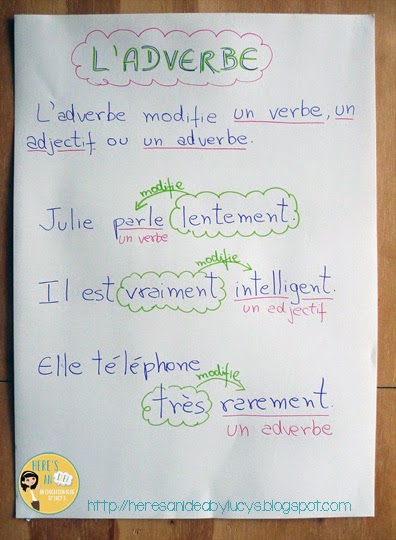 L'ADVERBE
L'adverbe modifie un verbe, un
adjectif ou un adverbe.
modifie
Julie parle lentement.
un verbe
modifie
Il est vraiment intelligent.
un adjectif
Elle téléphone
modifie
très rarement.
un adverbe
HERE'S
AN IDEA
AN EDUCATION BLOG
BY LUCY S.
http://heresanideabylucys.blogspot.com